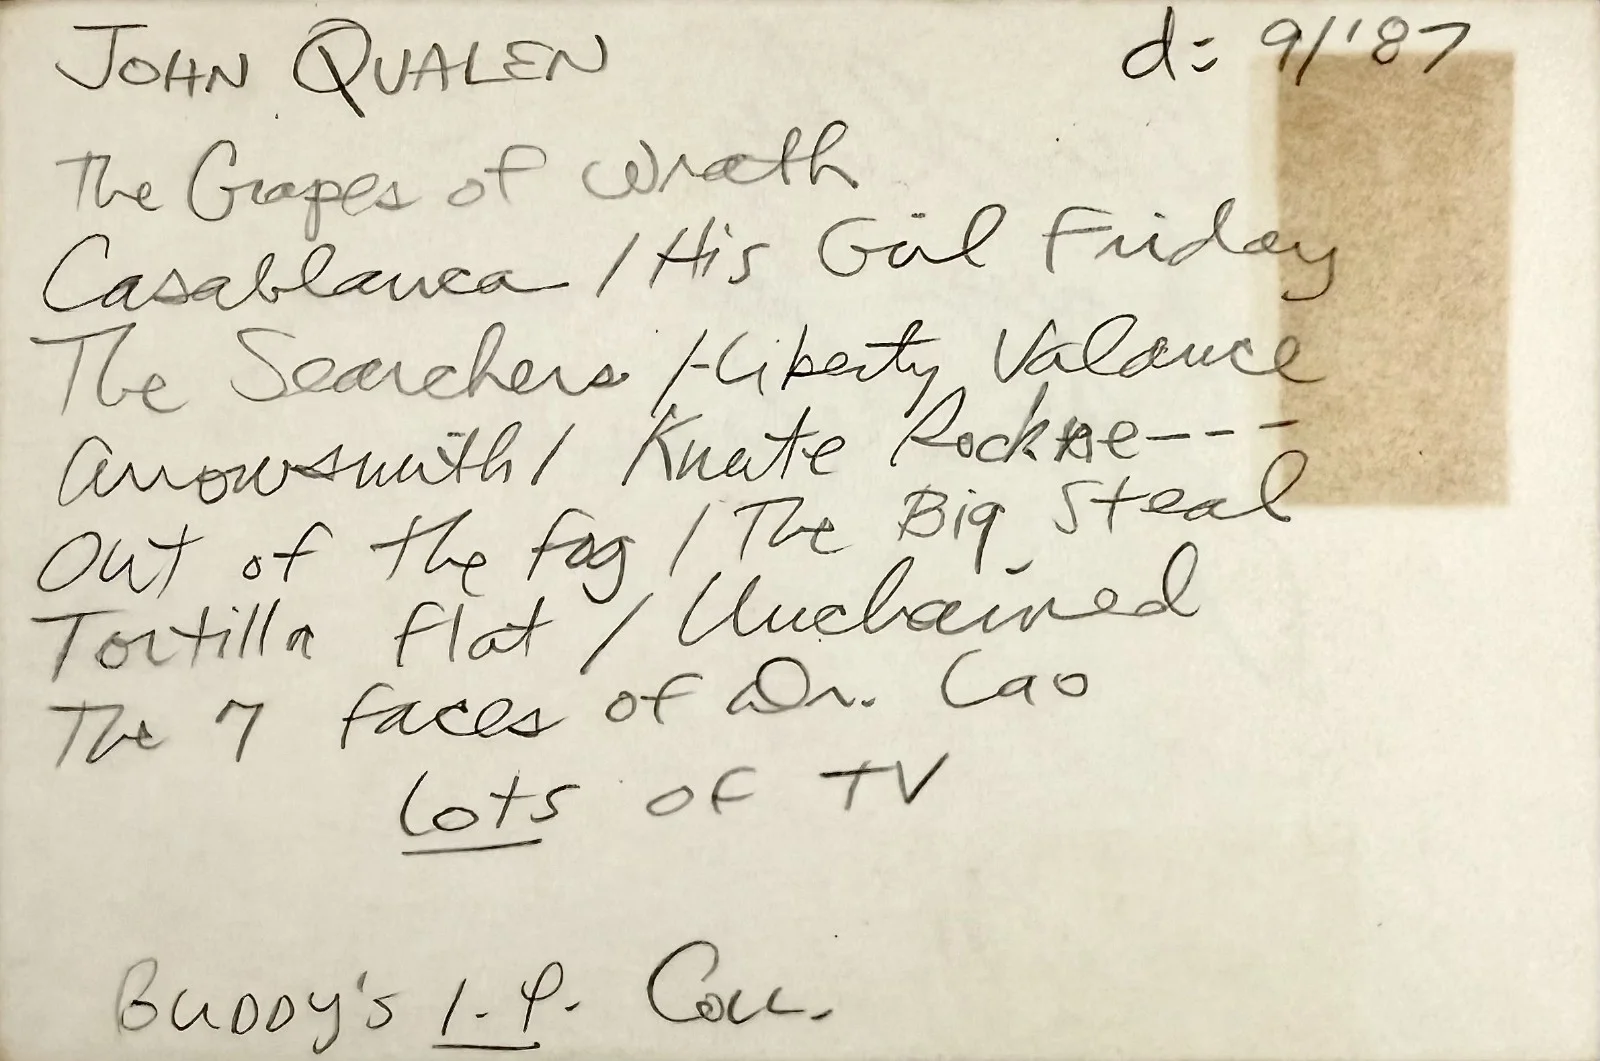 JOHN QUALEN d: 9/'87
The Grapes of Wrath
Casablanca / His Girl Friday
The Searchers / -Liberty Valance
Arrowsmith / Knute Rockne---
Out of the Fog / The Big Steal
Tortilla Flat / Unchained
The 7 Faces of Dr. Lao
Lots of TV
BUDDY'S I.P. Coll.